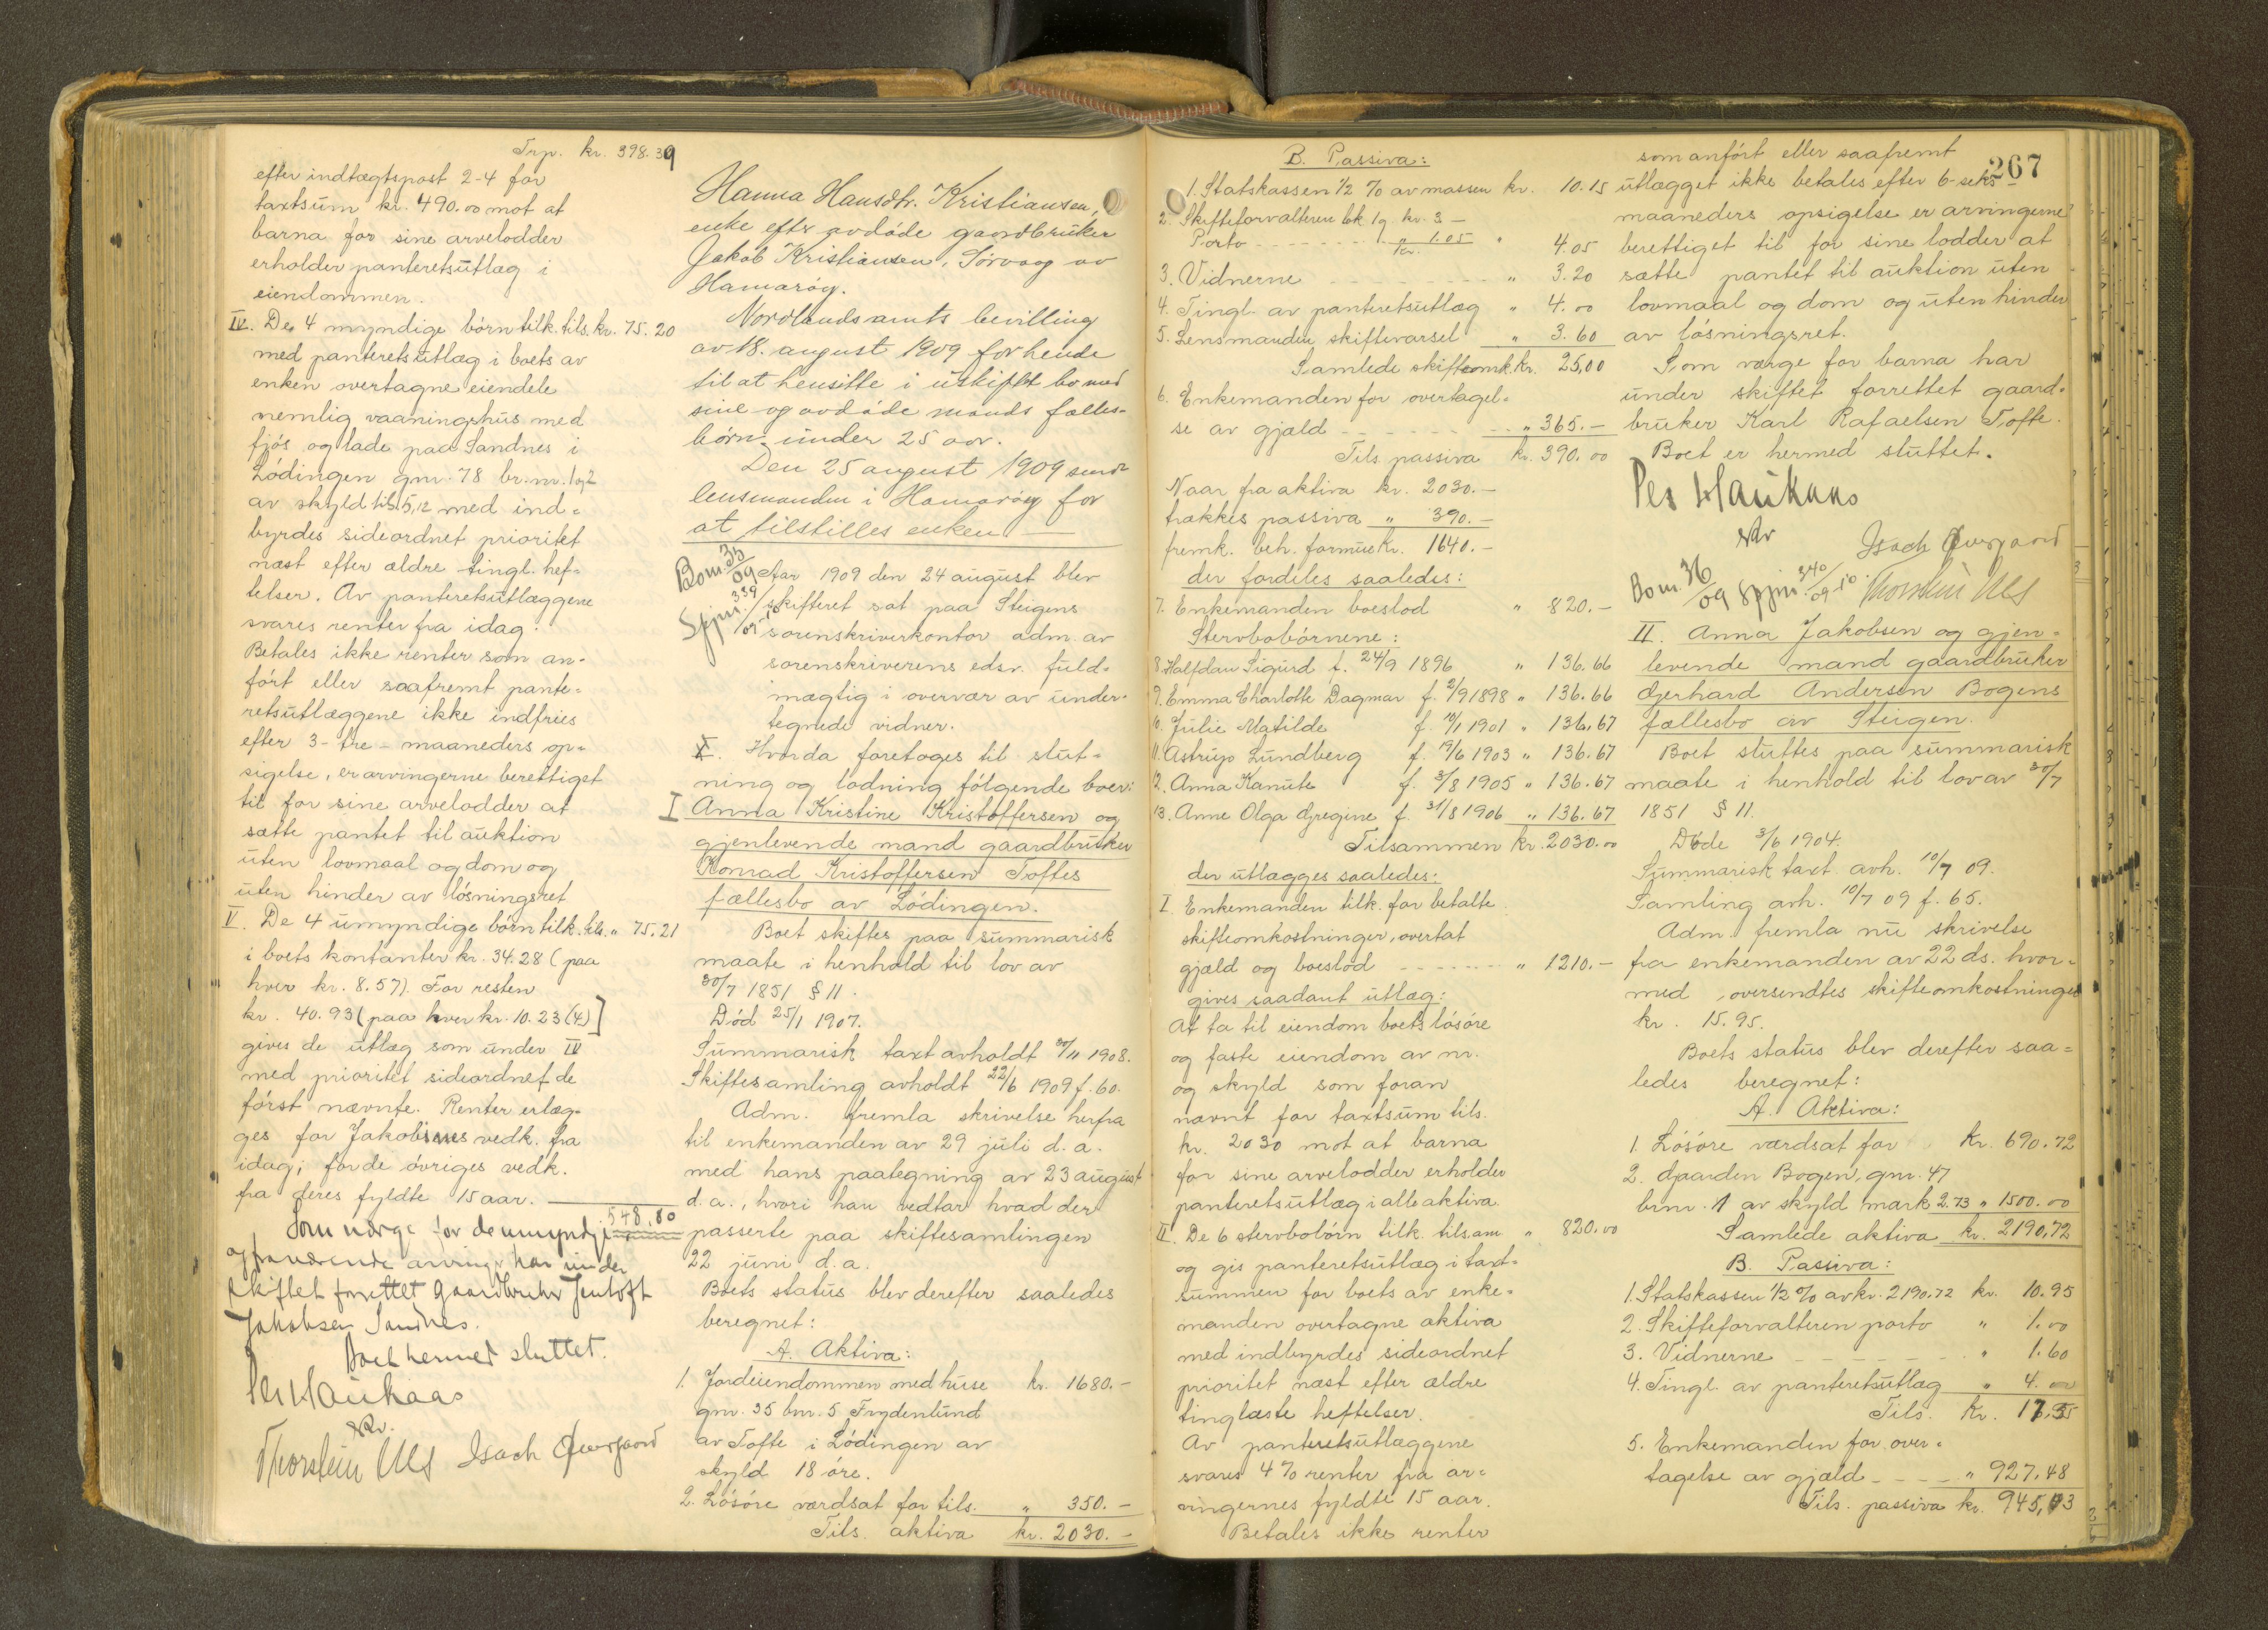 Trp. kr. 398.39
efter indtægtspost 2-4 for
taxtsum kr. 490.00 mot at
barna for sine arvelodder
erholder panteretsutlæg i
eiendommen.
IV. De 4 myndige børn tilk. tils. kr. 75.20
med panteretsutlæg i boets av
enken overtagne eiendele
nemlig vaaningshus med
fjøs og lade paa Sandnes i
Lødingen gnr. 78 br.nr. 1 og 2
av skyld tils 5,12 med ind=
byrdes sideordnet prioritet
næst efter ældre tingl. hef=
telser. Av panteretsutlæggene
svares renter fra idag.
Betales ikke renter som an=
ført eller saafremt pante=
retsutlæggene ikke indfries
efter 3- tre - maaneders op=
sigelse, er arvingerne berettiget
til for sine arvelodder at
sætte pantet til auktion
uten lovmaal og dom og
uten hinder av løsningsret
V. De 4 umyndige børn tilk. tils. " 75.21
i boets kontanter kr. 34.28 (paa
hver kr. 8.57). For resten
kr. 40.93 (paa hver kr. 10.23 (4)]
gives de utlæg som under IV
med prioritet sideordnet de
først nævnte. Renter erlæg=
ges for Jakobines vedk. fra
idag; for de øvriges vedk.
fra deres fyldte 15 aar.
548.80
Som værge for de umyndige
og fraværende arvinger har under
skiftet forrettet gaardbruker Jentoft
Jakobsen Sandnes.
Boet hermed sluttet.
Per Haukaas
skr.
Thorstein Uls Isach Overgaard
Hanna Hansdtr. Kristiansen,
enke efter avdøde gaardbruker
Jakob Kristiansen, Sørvaag av
Hamarøy.
Nordlands amts bevilling
av 18. august 1909 for hende
til at hensitte i uskiftet bo med
sine og avdøde mands fælles-
børn under 25 aar.
Den 25 august 1909 sendt
lensmanden i Hamarøy for
at tilstilles enken
Bom. 35/09
Spjm. 339/09-10
Aar 1909 den 24 august blev
skifteret sat paa Steigens
sorenskriverkontor adm. av
sorenskriverens edsv. fuld=
mægtig i overvær av under=
tegnede vidner.
X. Hvorda foretoges til slut=
ning og lodning følgende boer:
I Anna Kristine Kristoffersen og
gjenlevende mand gaardbruker
Konrad Kristoffersen Toftes
fællesbo av Lødingen.
Boet skiftes paa summarisk
maate i henhold til lov av
30/7 1851 § 11.
Død 25/1 1907.
Summarisk taxt avholdt 30/11 1908.
Skiftesamling avholdt 22/6 1909 f. 60.
Adm. fremla skrivelse herfra
til enkemanden av 29 juli d.a.
med hans paategning av 23 august
d.a., hvori han vedtar hvad der
passerte paa skiftesamlingen
22 juni d.a.
Boets status blev derefter saaledes
beregnet:
A. Aktiva:
1. Jordeiendommen med huse kr. 1680.-
gnr. 35 bnr. 5 Frydenlund
av Tofte i Lødingen av
skyld 18 øre.
2. Løsøre værdsat for tils. " 350.-
Tils. aktiva kr. 2030.-
B. Passiva:
1. Statskassen 1/2 % av massen kr. 10.15
2. Skifteforvalteren bk. 1g kr. 3.-
Porto " 1.05
kr. " 4.05
3. Vidnerne " 3.20
4. Tingl. av panteretsutlæg " 4.00
5. Lensmanden skiftevarsel " 3.60
Samlede skifteomk. kr. 25,00
6. Enkemanden for overtagel=
se av gjæld " 365.-
Tils. passiva kr. 390.00
Naar fra aktiva kr. 2030.-
trækkes passiva " 390.-
fremk. beh. formue kr. 1640.-
der fordeles saaledes:
7. Enkemanden boeslod " 820.-
Stervbobørnene:
8. Halfdan Sigurd f. 24/9 1896 " 136.66
9. Emma Charlotte Dagmar f. 2/9 1898 " 136.66
10. Julie Matilde f. 10/1 1901 " 136.67
11. Astrup Lundberg f. 19/6 1903 " 136.67
12. Anna Kanute f. 3/8 1905 " 136.67
13. Anne Olga Gregine f. 31/8 1906 " 136.67
Tilsammen kr. 2030.00
der utlægges saaledes:
I. Enkemanden tilk. for betalte
skifteomkostninger, overtat
gjæld og boeslod " 1210.-
gives saadant utlæg:
At ta til eiendom boets løsøre
og faste eiendom av nr.
og skyld som foran
nævnt for taxtsum tils.
kr. 2030 mot at barna
for sine arvelodder erholder
panteretsutlæg i alle aktiva.
II. De 6 stervbobørn tilk. tilsam " 820.00
og gis panteretsutlæg i taxt=
summen for boets av enke=
manden overtagne aktiva
med indbyrdes sideordnet
prioritet næst efter ældre
tinglæste heftelser.
Av panteretsutlæggene
svares 4% renter fra ar=
vingernes fyldte 15 aar.
Betales ikke renter
267
som anført eller saafremt
utlægget ikke betales efter 6-seks-
maaneders opsigelse er arvingerne
berettiget til for sine lodder at
sætte pantet til auktion uten
lovmaal og dom og uten hinder
av løsningsret.
Som værge for barna har
under skiftet forrettet gaard=
bruker Karl Rafaelsen Tofte.
Boet er hermed sluttet.
Per Haukaas
skr
Isach Overgaard
Thorstein Uls
Bom. 36/09 Spjm. 340/09-10
II. Anna Jakobsen og gjen=
levende mand gaardbruker
Gerhard Andersen Bogens
fællesbo av Steigen.
Boet sluttes paa summarisk
maate i henhold til lov av 30/7
1851 § 11.
Døde 3/6 1904.
Summarisk taxt avh. 10/7 09.
Samling avh. 10/7 09 f. 65.
Adm. fremla nu skrivelse
fra enkemanden av 22 ds. hvor=
med oversendtes skifteomkostninger
kr. 15.95.
Boets status blev derefter saa=
ledes beregnet:
A. Aktiva:
1. Løsøre værdsat for kr. 690.72
2. Gaarden Bogen, gnr. 47
brnr. 1 av skyld mark 2.73 " 1500.00
Samlede aktiva kr. 2190,72
B. Passiva:
1. Statskassen 1/2 % av kr. 2190.72 kr. 10.95
2. Skifteforvalteren porto " 1.00
3. Vidnerne " 1.60
4. Tingl. av panteretsutlæg " 4.00
Tils. kr. 17,55
5. Enkemanden for over=
tagelse av gjæld " 927.48
Tils. passiva kr. 945,03